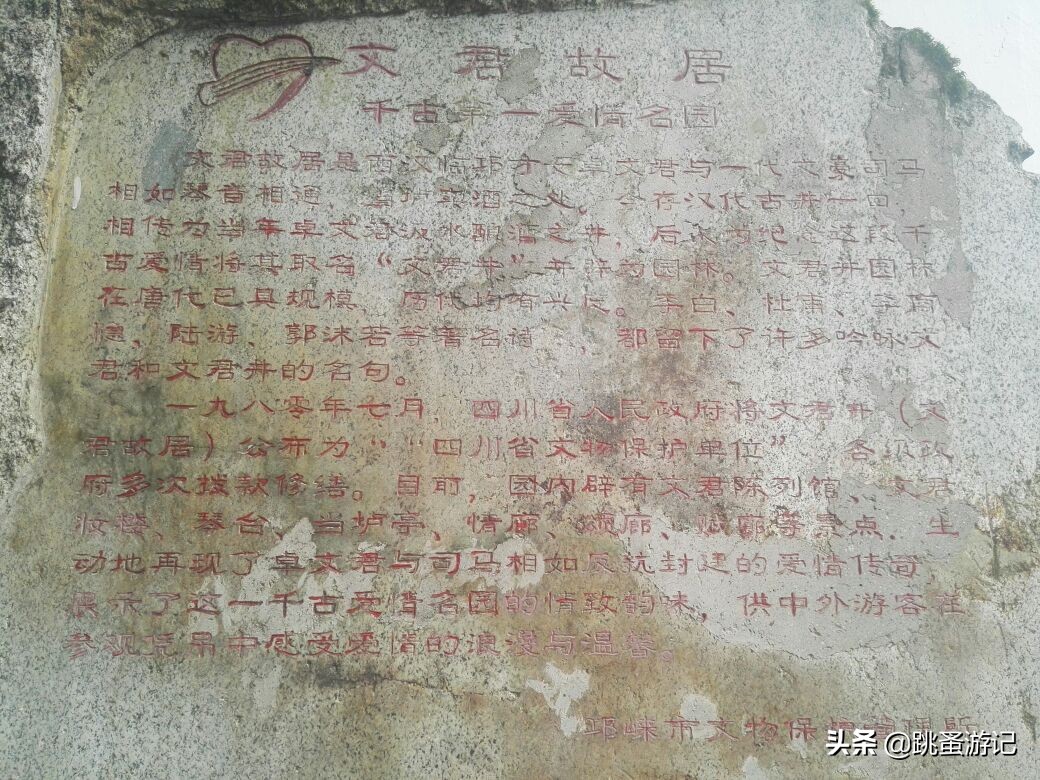 文君故居
千古第一爱情名园
文君故居是西汉临邛才女卓文君与一代文豪司马
相如琴音相通、当垆卖酒之处。今存汉代古井一口，
相传为当年卓文君汲水酿酒之井，后人为纪念这段千
古爱情将其取名“文君井”并辟为园林。文君井园林
在唐代已具规模，历代均有兴废。李白、杜甫、李商
隐、陆游、郭沫若等著名诗，都留下了许多吟咏文
君和文君井的名句。
一九八零年七月，四川省人民政府将文君井（文
君故居）公布为““四川省文物保护单位” 各级政
府多次拨款修缮。目前，园内辟有文君陈列馆、文君
妆楼、琴台、当垆亭、情廊、颂廊、赋廊等景点．生
动地再现了卓文君与司马相如反抗封建的爱情传奇，
展示了这一千古爱情名园的情致韵味，供中外游客在
参观凭吊中感受爱情的浪漫与温馨。
邛崃市文物保护管理所
头条 @跳蚤游记